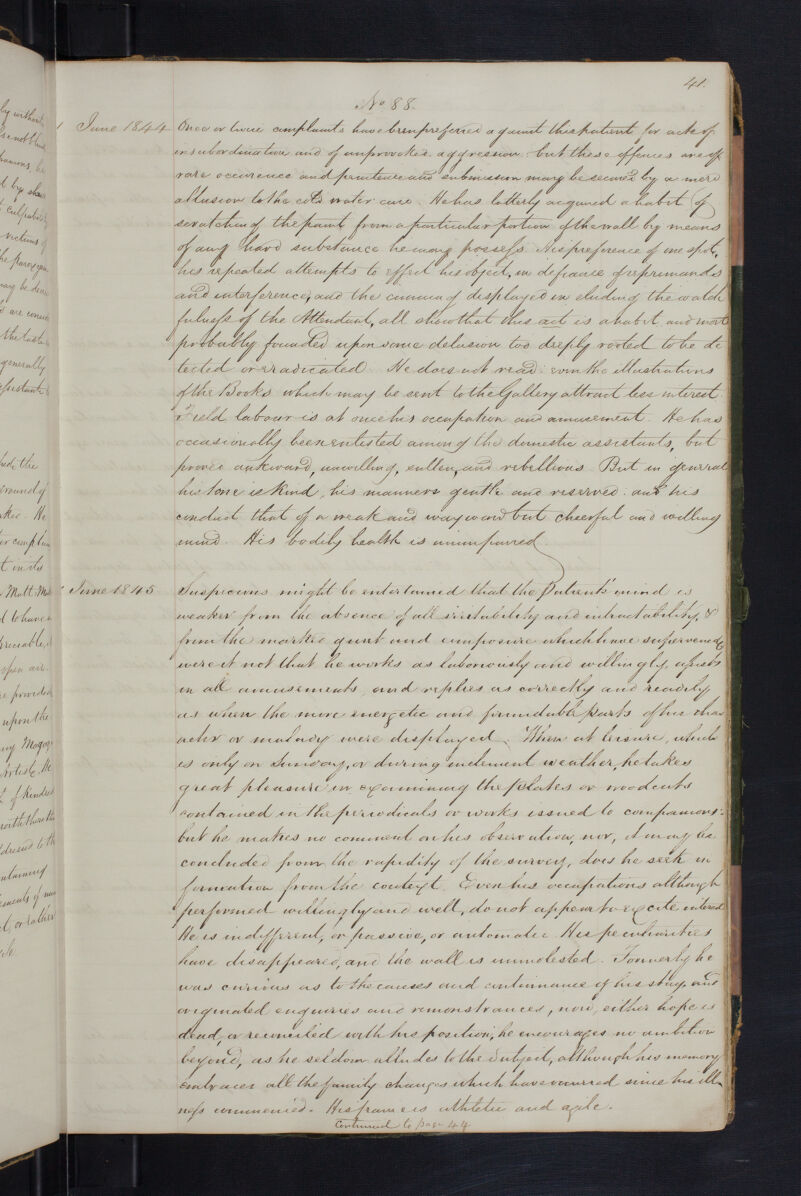 41.
No 88.
June 1844 Once or twice complaints have been preferred against this patient for acts of
insubordination and of unprovoked aggression but these offences are of
rare occurence and penitence and submission may be secured by a mere
allusion to the cold water cure. He has latterly acquired a habit of
scratching the paint from a particular portion of the wall by means
of any hard substance he may possess. His preference of one spot,
his repeated attempts to effect his object, in defiance of reprimands
and interference, and the cunning displayed in eluding the watch
fulness of the Attendant, all show that this act is a habit and most
probably founded upon some delusion too deeply rooted to be de
tected or eradicated. He does not read: even the illustrations
of the Books which may be sent to the Gallery attract less interest.
Field labour is at once his occupation and amusement. He has
occasionally been enlisted among the domestic assistants, but
proved aukward, unwilling, sullen, and rebellious. But in general
his tone is kind, his manners gentle and reserved: and his
conduct that of a weak and wayward but cheerful and willing
mind. His bodily health is unimpaired.
June 1845 Suspicions might be entertained that the Patient's mind is
weaker from the absence of all irritability and intractability, &
from the marked quiet and composure which have supervened,
were it not that he works as laboriously and willingly, assists
in all amusements, and replies as correctly and readily
as when the more energetic and formidable parts of his char
acter or malady were displayed. When at leisure, which
is only on Sunday, or during inclement weather, he takes
great pleasure in examining the plates or woodcuts
contained in the periodicals or works issued to companions:
but he makes no comment on his observation, nor, it may be
concluded from the rapidity of the survey, does he seek in
formation from the context. Even his occupations although
performed willingly and well, do not appear to excite interest
He is indifferent, or passive, or automatic. His peculiarities
have disappeared, and the wall is unmolested. Formerly he
was curious as to the causes and continuance of his stay, and
originated enquiries and remonstrances, now, either hope is
dead, or reconciled with his position, he encourages no ambition
beyond, as he seldom alludes to the subject, although his memory
embraces all the family changes which have occurred since his ill
ness commenced. His frame is athletic and agile.
Continued to page 44